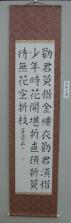 勸君莫惜金縷衣勸君須惜
少年時花開堪折直須折莫
待無花空折枝